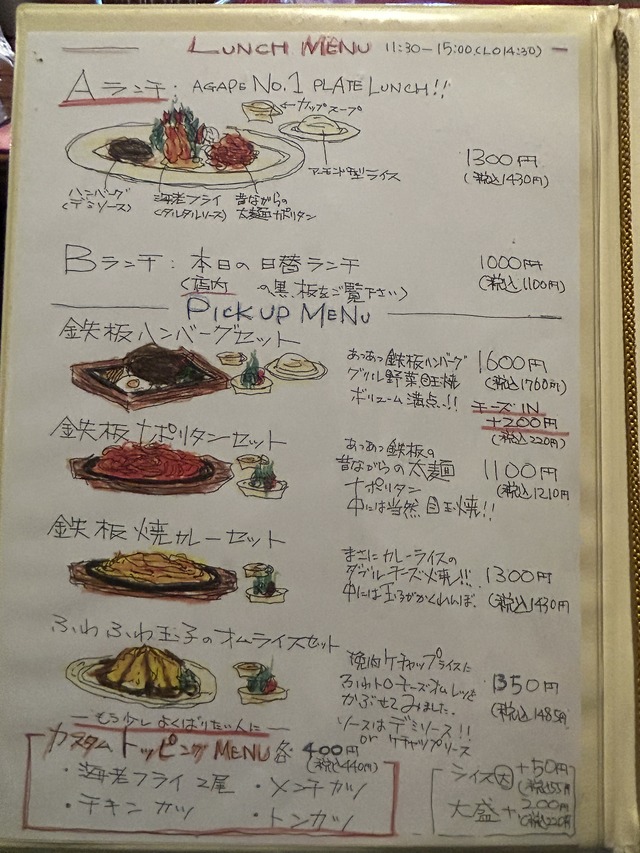 LUNCH MENU 11:30-15:00(LO14:30)
Aランチ: AGAPE No.1 PLATE LUNCH!!
←カップスープ
アーモンド型ライス
1300円
(税込1430円)
ハンバーグ
(デミソース)
海老フライ
(タルタルソース)
昔ながらの
太麺ナポリタン
Bランチ: 本日の日替ランチ
(店内 の黒板をご覧下さい)
1000円
(税込1100円)
PICK UP MENU
鉄板ハンバーグセット
あっあっ鉄板ハンバーグ
グリル野菜 目玉焼
ボリューム満点!!
1600円
(税込1760円)
チーズIN
+200円
(税込220円)
鉄板ナポリタンセット
あっあっ鉄板の
昔ながらの太麺
ナポリタン
中には当然目玉焼!!
1100円
(税込1210円
鉄板焼カレーセット
まさにカレーライスの
ダブルチーズ焼!!
中には玉子がかくれんぼ.
1300円
(税込1430円
ふわふわ玉子のオムライスセット
挽肉ケチャップライスに
ふわトロチーズオムレツを
かぶせてみました.
ソースはデミソース!!
or ケチャップソース
1350円
(税込1485円
もう少しよくばりたい人に
カスタムトッピングMENU各400円
(税込440円)
・海老フライ2尾
・メンチカツ
・チキンカツ
・トンカツ
ライス大 +50円
(税込55円
大盛+200円
(税込220円